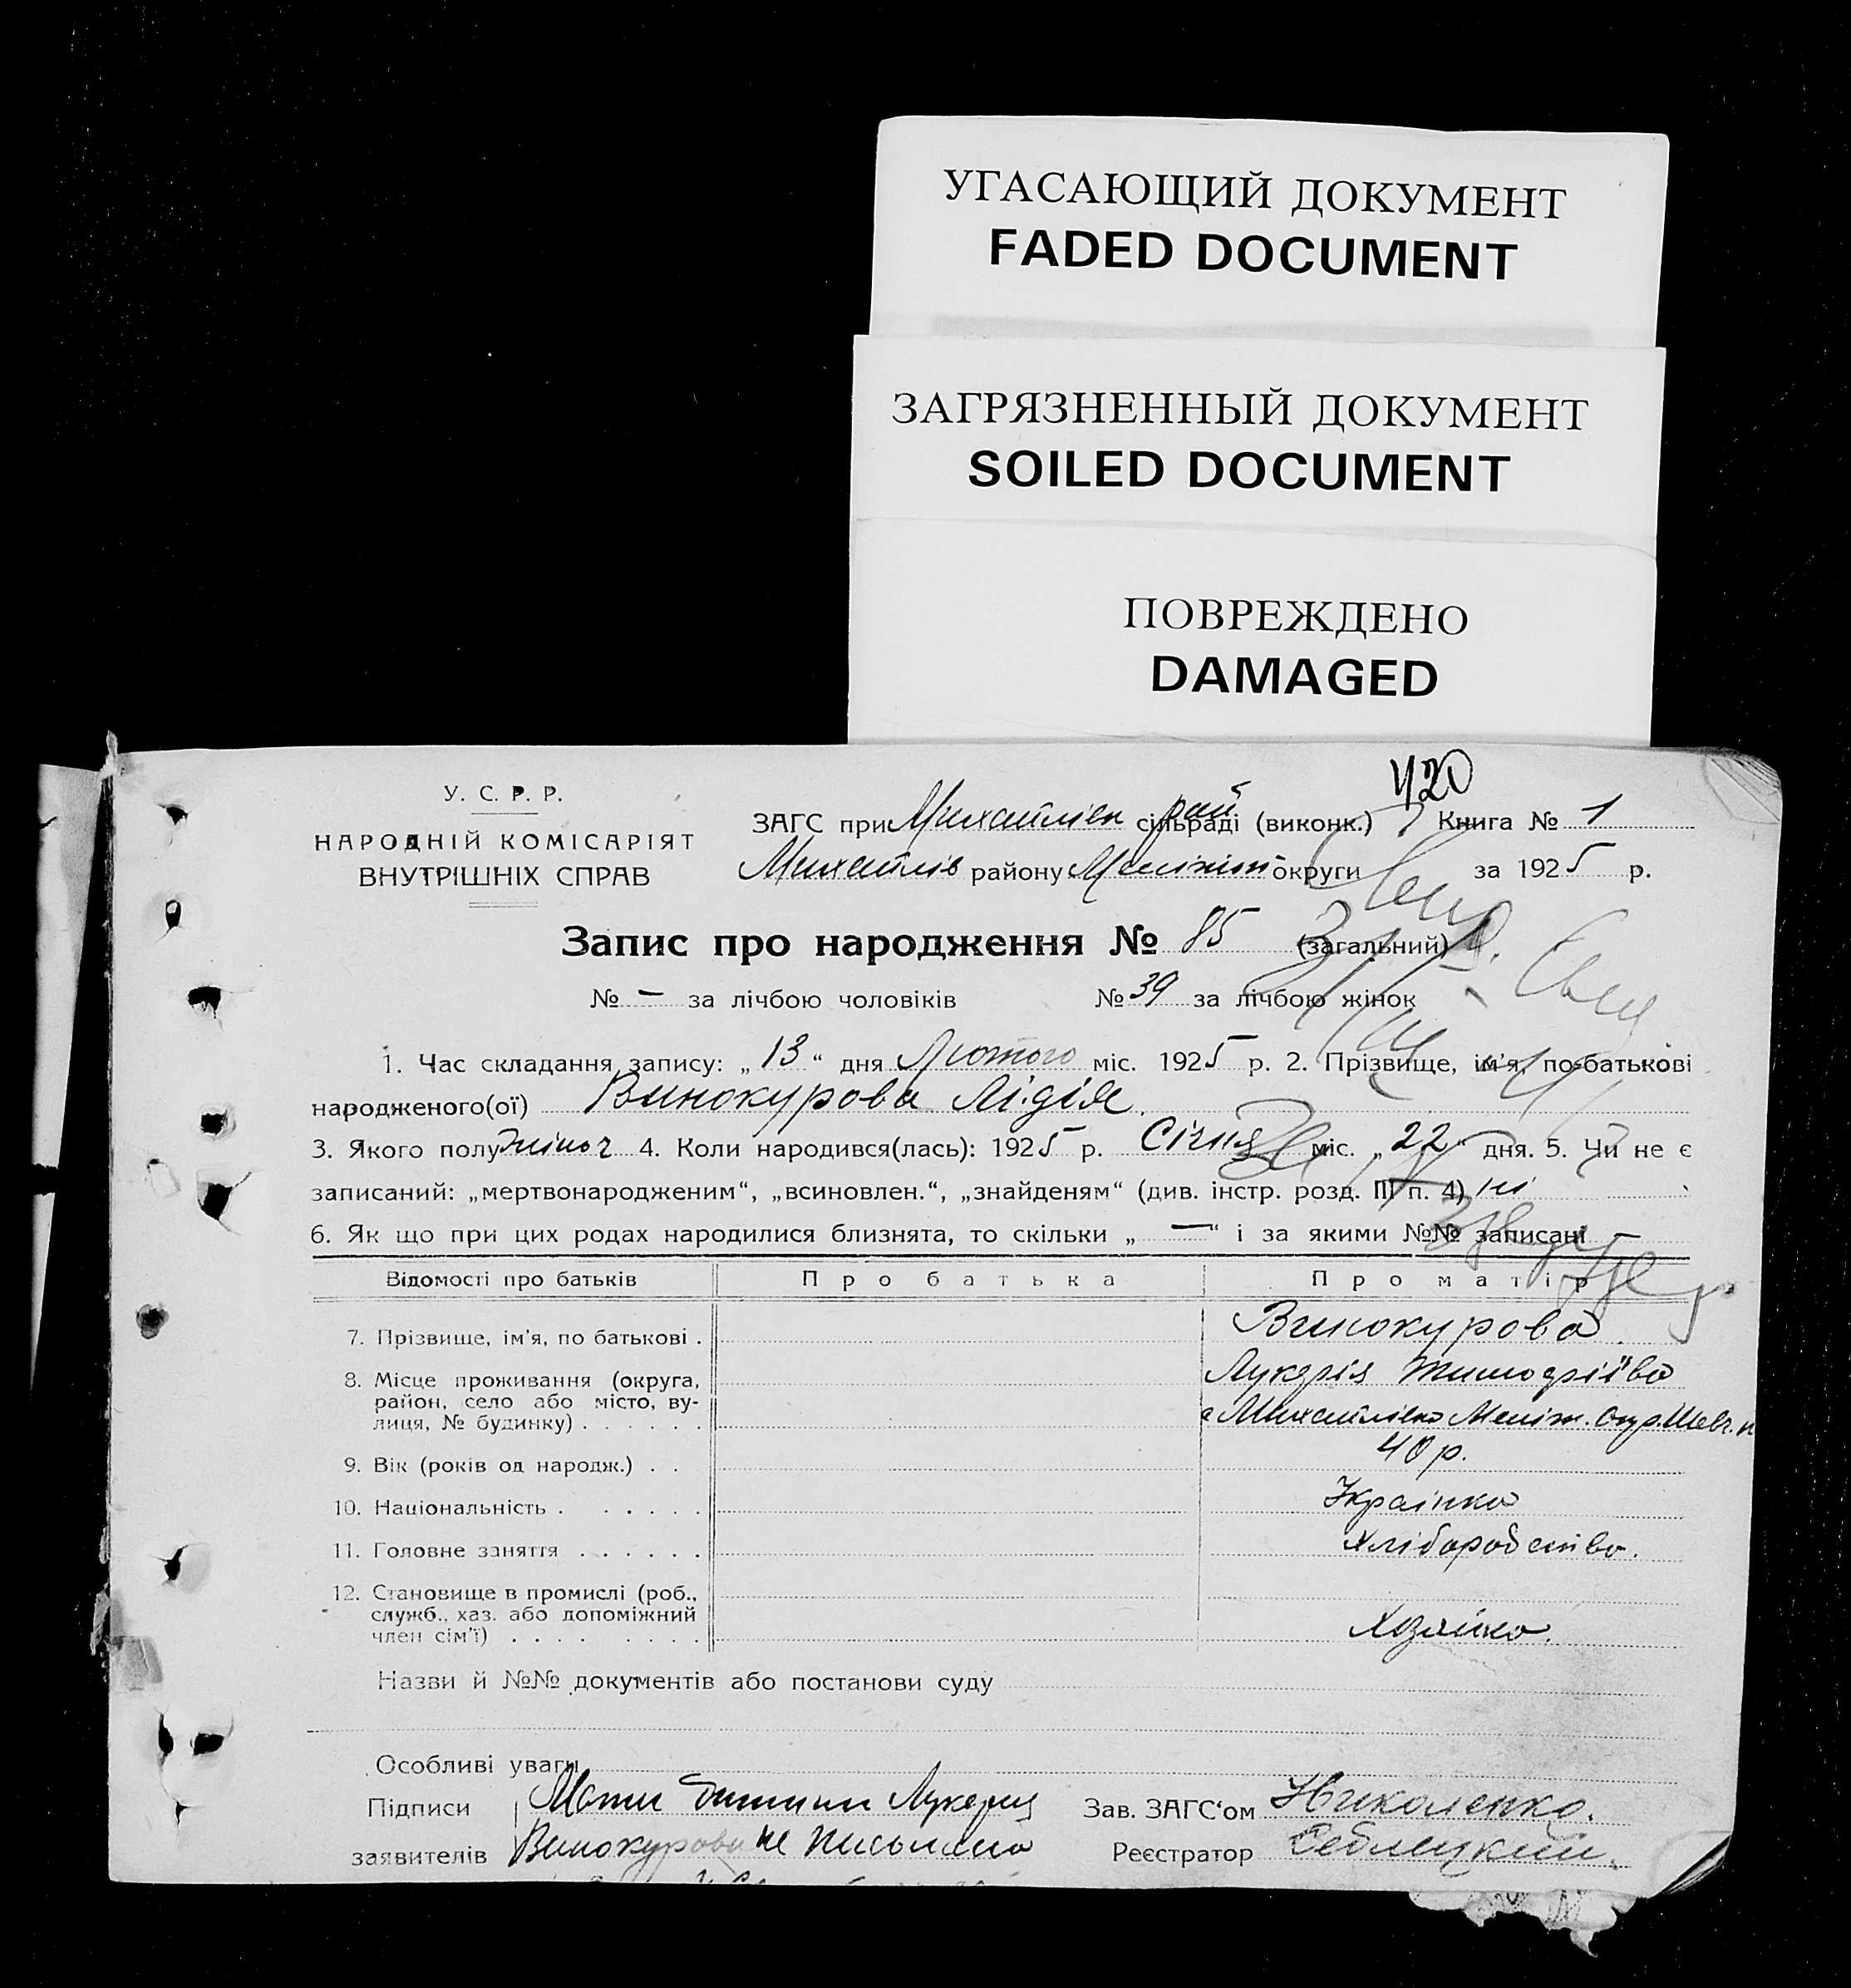 УГАСАЮЩИЙ ДОКУМЕНТ
FADED DOCUMENT
ЗАГРЯЗНЕННЫЙ ДОКУМЕНТ
SOILED DOCUMENT
ПОВРЕЖДЕНО
DAMAGED
420
У. С. Р. Р.
НАРОДНІЙ КОМІСАРІЯТ
ВНУТРІШНІХ СПРАВ
ЗАГС при Михайлівск рай сільраді (виконк.) Книга № 1
Михайлів району Меліт округи за 1925 р.
Запис про народження № 85 (загальний)
№ — за лічбою чоловіків № 39 за лічбою жінок
1. Час складання запису: „13“ дня Лютого міс. 1925 р. 2. Прізвище, ім'я, по-батькові
народженого(ої) Винокурова Лідія.
3. Якого полу жіноч 4. Коли народився(лась): 1925 р. Січня міс. „22“ дня. 5. Чи не є
записаний: „мертвонародженим“, „всиновлен.“, „знайденям“ (див. інстр. розд. III п. 4) ні
6. Як що при цих родах народилися близнята, то скільки „—“ і за якими №№ записані
Відомості про батьків Про батька Про матір
7. Прізвище, ім'я, по батькові . Винокурова
8. Місце проживання (округа, Лукерія Тимофіїва
район, село або місто, ву-
лиця, № будинку) . . . . . . с Михайлівка Меліт. Окр. Шевч.
9. Вік (років од народж.) . . 40 р.
10. Національність . . . . . . Українка
11. Головне заняття . . . . . . Хліборобство.
12. Становище в промислі (роб.,
служб., хаз. або допоміжний
член сім'ї) . . . . . . . . Хозяйка.
Назви й №№ документів або постанови суду
Особливі уваги
Підписи Мати дитини Лукерия Зав. ЗАГС'ом Николенко.
заявителів Винокурова не письмена Реєстратор